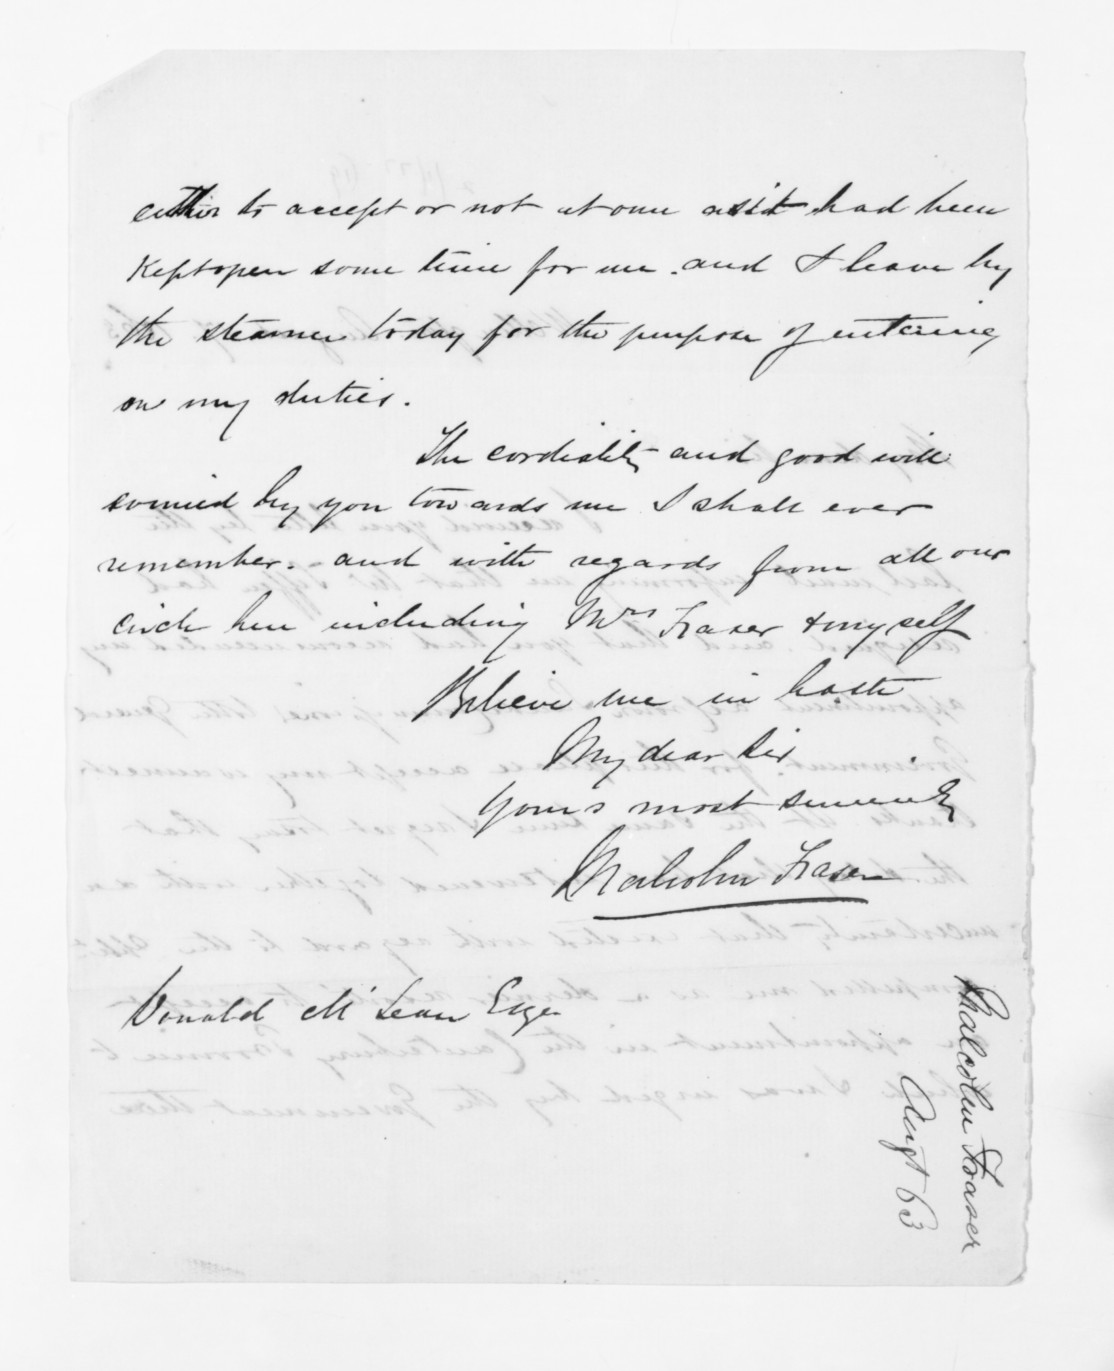 either to accept or not at once as it had been
Kept open some time for me. and I leave by
the steamer today for the purpose of entering
on my duties.
The cordiality and good will
evinced by you towards me I shall ever
remember. and with regards from all our
circle here including Mrs Fraser & myself
Believe me in haste
My dear Sir
Yours most sincerely
Malcolm Fraser
Donald McLean Esqe
Malcolm Fraser
Augt 63